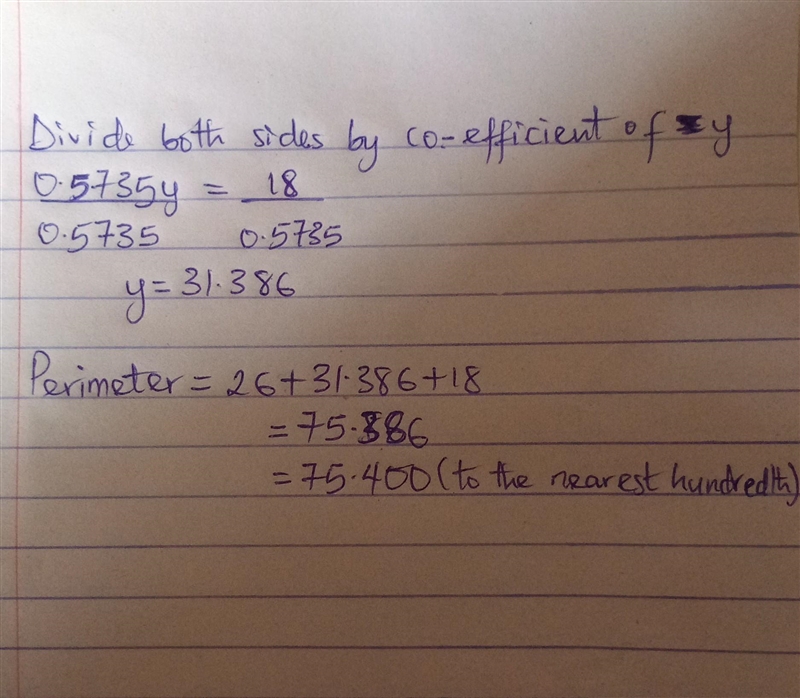 Divide both sides by co-efficient of y
0.5735y = 18
0.5735 0.5735
y = 31.386
Perimeter = 26 + 31.386 + 18
= 75.386
= 75.400 (to the nearest hundredth)